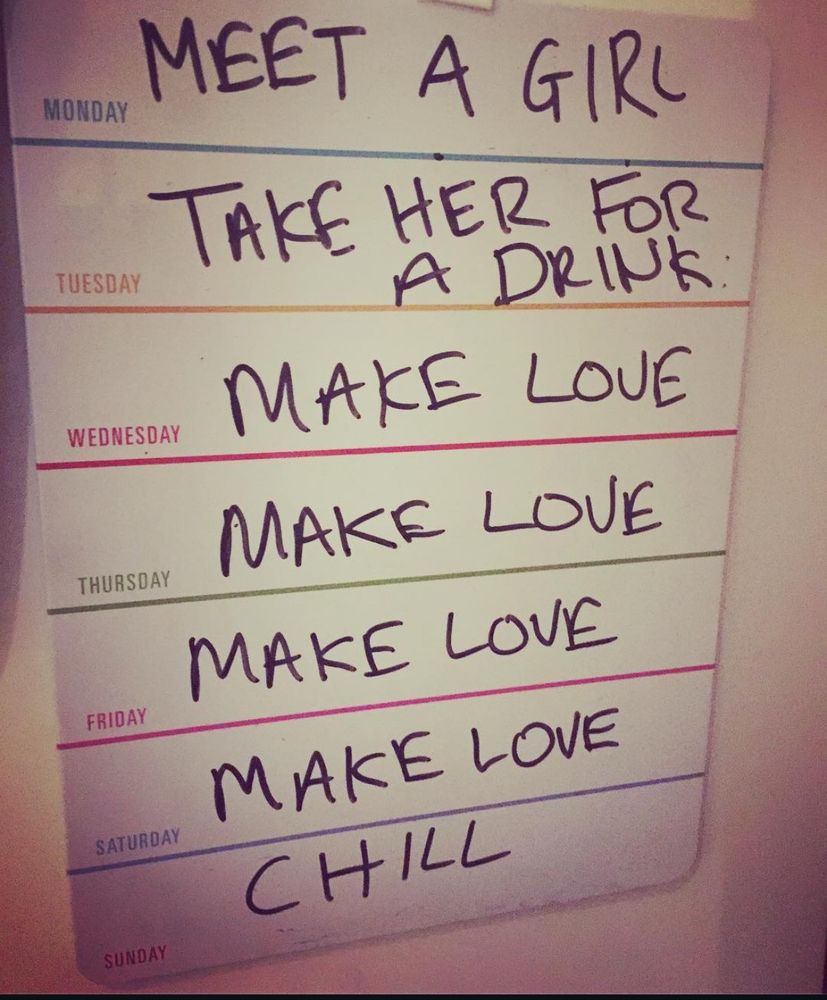 MEET A GIRL
MONDAY
TAKE HER FOR
A DRINK.
TUESDAY
MAKE LOVE
WEDNESDAY
MAKE LOVE
THURSDAY
MAKE LOVE
FRIDAY
MAKE LOVE
SATURDAY
CHILL
SUNDAY